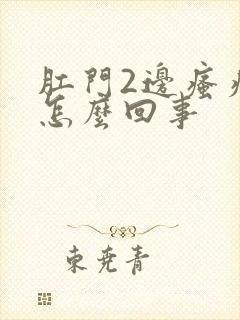 肛門2邊瘙癢
怎麼回事
東堯青